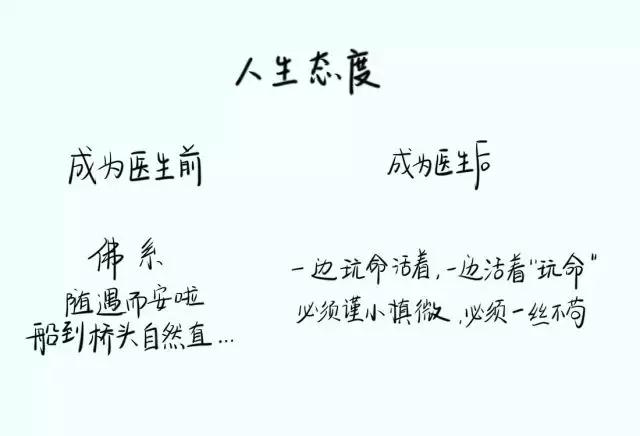 人生态度
成为医生前
成为医生后
佛系
随遇而安啦
船到桥头自然直...
一边玩命活着,一边活着“玩命”
必须谨小慎微,必须一丝不苟